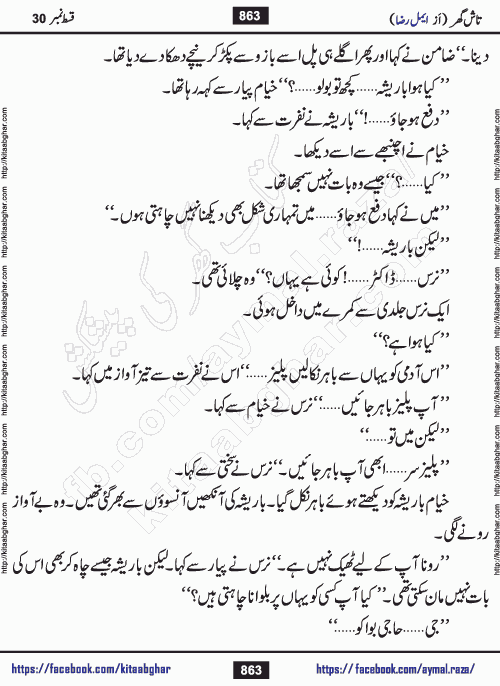 تاش گھر (از ایمل رضا) 863 قسط نمبر 30
دینا۔‘‘ ضامن نے کہا اور پھر اگلے ہی پل اسے بازو سے پکڑ کر نیچے دھکا دے دیا تھا۔
’’کیا ہوا باریشہ...... کچھ تو بولو......؟‘‘ خیام پیار سے کہہ رہا تھا۔
’’دفع ہو جاؤ......!‘‘ باریشہ نے نفرت سے کہا۔
خیام نے اچنبھے سے اسے دیکھا۔
’’کیا......؟‘‘ جیسے وہ بات نہیں سمجھا تھا۔
’’میں نے کہا دفع ہو جاؤ...... میں تمہاری شکل بھی دیکھنا نہیں چاہتی ہوں۔‘‘
’’لیکن باریشہ......!‘‘
’’نرس...... ڈاکٹر......! کوئی ہے یہاں؟‘‘ وہ چلائی تھی۔
ایک نرس جلدی سے کمرے میں داخل ہوئی۔
’’کیا ہوا ہے؟‘‘
’’اس آدمی کو یہاں سے باہر نکالیں پلیز......‘‘ اس نے نفرت سے تیز آواز میں کہا۔
’’آپ پلیز باہر جائیں......‘‘ نرس نے خیام سے کہا۔
’’لیکن میں تو......‘‘
’’پلیز سر...... ابھی آپ باہر جائیں۔‘‘ نرس نے سختی سے کہا۔
خیام باریشہ کو دیکھتے ہوئے باہر نکل گیا۔ باریشہ کی آنکھیں آنسوؤں سے بھر گئی تھیں۔ وہ بے آواز
رونے لگی۔
’’رونا آپ کے لیے ٹھیک نہیں ہے۔‘‘ نرس نے پیار سے کہا۔ لیکن باریشہ جیسے چاہ کر بھی اس کی
بات نہیں مان سکتی تھی۔ ’’کیا آپ کسی کو یہاں پر بلوانا چاہتی ہیں؟‘‘
’’جی...... حاجی بوا کو......‘‘
https://facebook.com/kitaabghar 863 https://facebook.com/aymal.raza/
http://kitaabghar.com http://kitaabghar.com http://kitaabghar.com http://kitaabghar.com http://kitaabghar.com http://kitaabghar.com
http://kitaabghar.com http://kitaabghar.com http://kitaabghar.com http://kitaabghar.com http://kitaabghar.com http://kitaabghar.com
کتاب گھر کی پیشکش
fb.com/aymal.raza/
kitaabghar.com